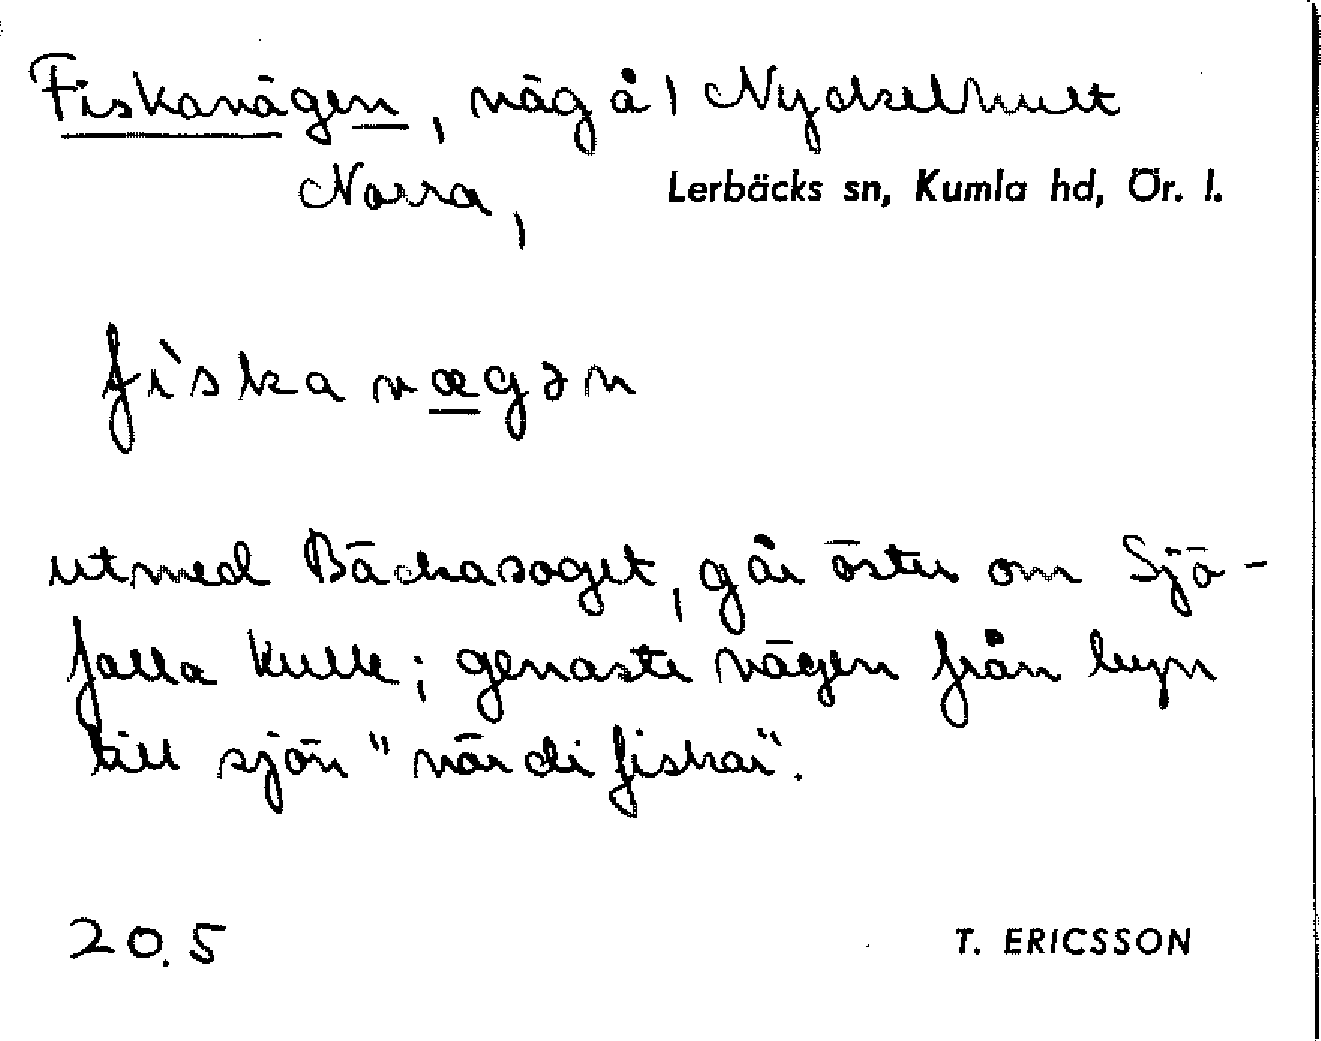 Fiskavägen, väg å 1 Nyckelhult
Norra, Lerbäcks sn, Kumla hd, Ör. l.
fìskavægən
utmed Bäckasoget, går öster om Sjö-
falla kulle; genaste vägen från byn
till sjön "när di fiskar".
20.5 T. ERICSSON